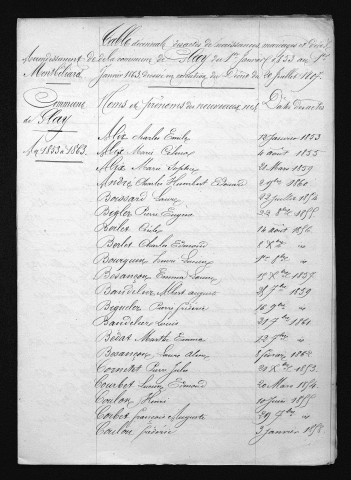 Table décennale des actes de naissances, mariages et décès
Arrondissement de de la commune de Glay du 1er Janvier 1853 au 1er
Montbéliard Janvier 1863 dressée en exécution du Décret du 20 Juillet 1807.
Commune Noms et prénoms des nouveaux nés Dates des actes
de Glay
Alix Charles Emile 12 Janvier 1853
An 1853 à 1863. Alix Marie Celina 4 août 1855
Alix Marie Sophie 21 Mars 1859
André Charles Humbert Edouard 2 9bre 1860
Boissard Louise 23 Juillet 1854
Bégler Pierre Eugène 22 8bre 1855
Borlet Cécile 14 août 1856
Borlet Charles Edmond 1 Xbre "
Bourquin 1er 8bre "
Besançon Emma Louise 15 Xbre 1857
Baudelier Albert auguste 21 7bre 1859
Béguelet Pierre frédéric 16 9bre "
Baudelier Louis 21 7bre 1861
Bédat Marthe Emma 12 7bre "
Besançon Louis février 1862
Cornetet Pierre Jules 21 Xbre 1853
Courbet Lucien Edmond 20 Mars 1854
Coulon Henri 10 Juin 1855
Corbet françois Auguste 29 7bre "
Coulon frédéric 3 Janvier